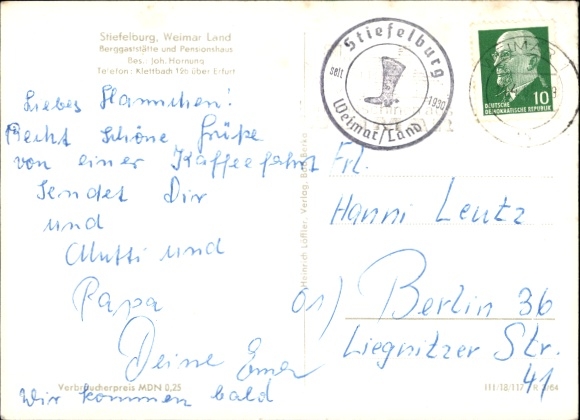 Stiefelburg, Weimar Land
Berggaststätte und Pensionshaus
Bes.: Joh. Hornung
Telefon: Klettbach 126 über Erfurt
Liebes Hannchen!
Recht schöne Grüße
von einer Kaffeefahrt
sendet Dir
und
Mutti und
Papa
Deine
Wir kommen bald
Verbraucherpreis MDN 0,25
Heinrich Löffler, Verlag, Bad Berka
Stiefelburg
seit 1930
Weimar/Land
10
DEUTSCHE
DEMOKRATISCHE REPUBLIK
Frl.
Hanni Lentz
01) Berlin 36
Liegnitzer Str.
41
III/18/117